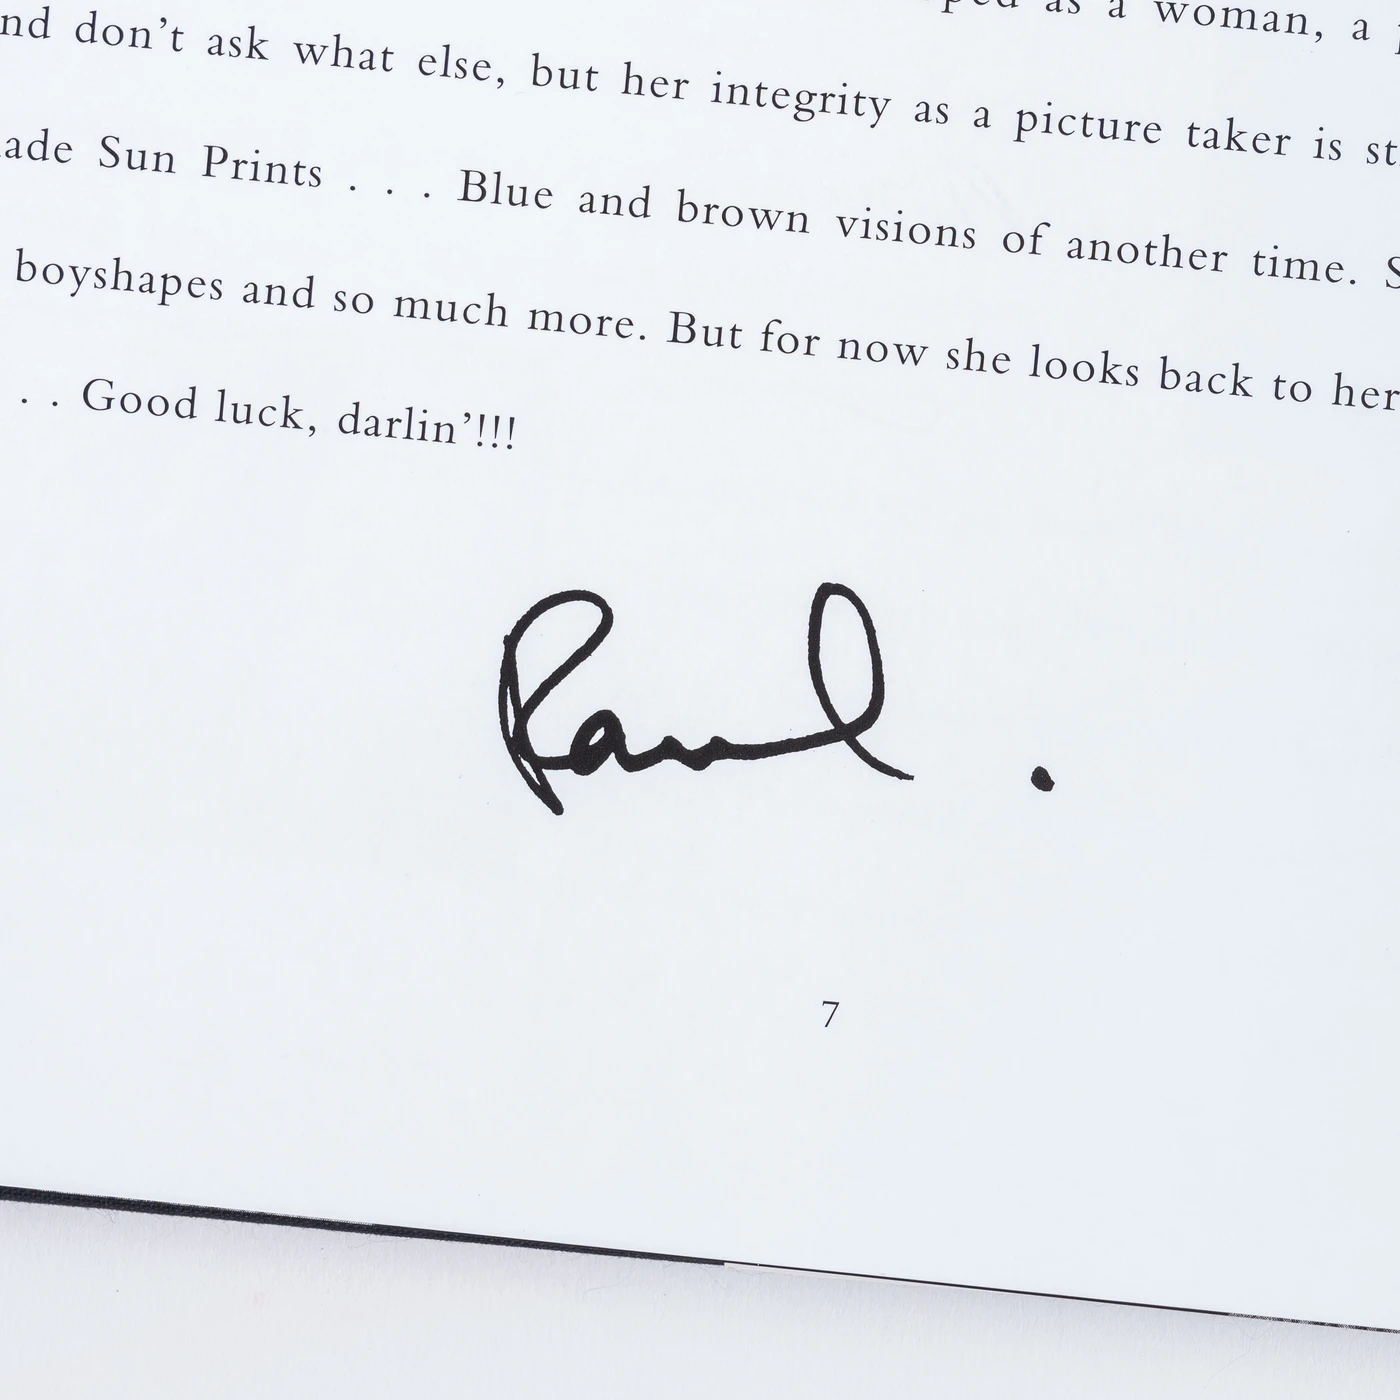 as a woman, a
nd don't ask what else, but her integrity as a picture taker is st
ade Sun Prints . . . Blue and brown visions of another time. S
boyshapes and so much more. But for now she looks back to her
. . Good luck, darlin'!!!
Paul .
7